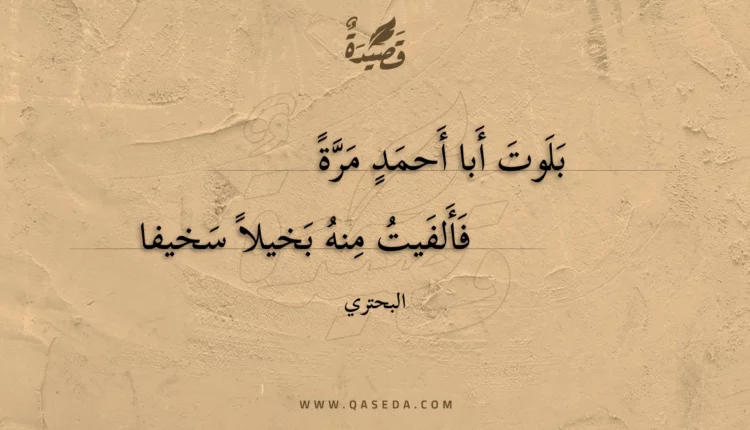 قَصِيدَةٌ
بَلَوتَ أَبا أَحمَدٍ مَرَّةً
فَأَلفَيتُ مِنهُ بَخيلاً سَخيفا
البحتري
WWW.QASEDA.COM